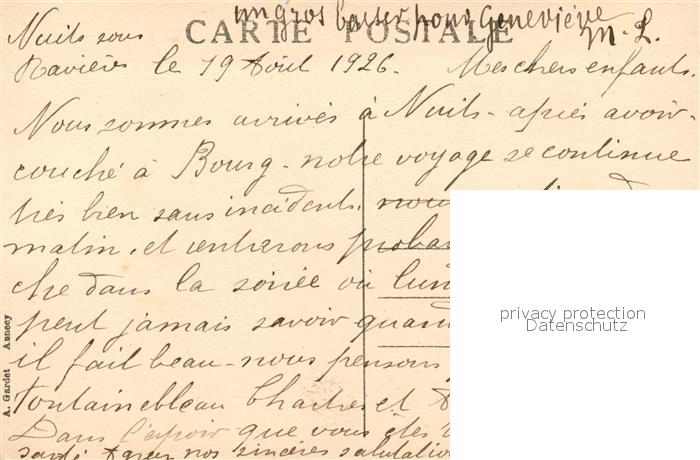 un gros baiser pour Geneviève
M. L.
CARTE POSTALE
Nuits sous
Ravières le 19 Août 1926. Mes chers enfants.
Nous sommes arrivés à Nuits - après avoir
couché à Bourg - notre voyage se continue
très bien sans incidents. nous
matin. et rentrerons
che dans la soirée ou
peut jamais savoir quand
il fait beau - nous pensons
Fontainebleau Chartres et
Dans l'espoir que vous êtes
santé nos sincères
A. Gardet Annecy
privacy protection
Datenschutz